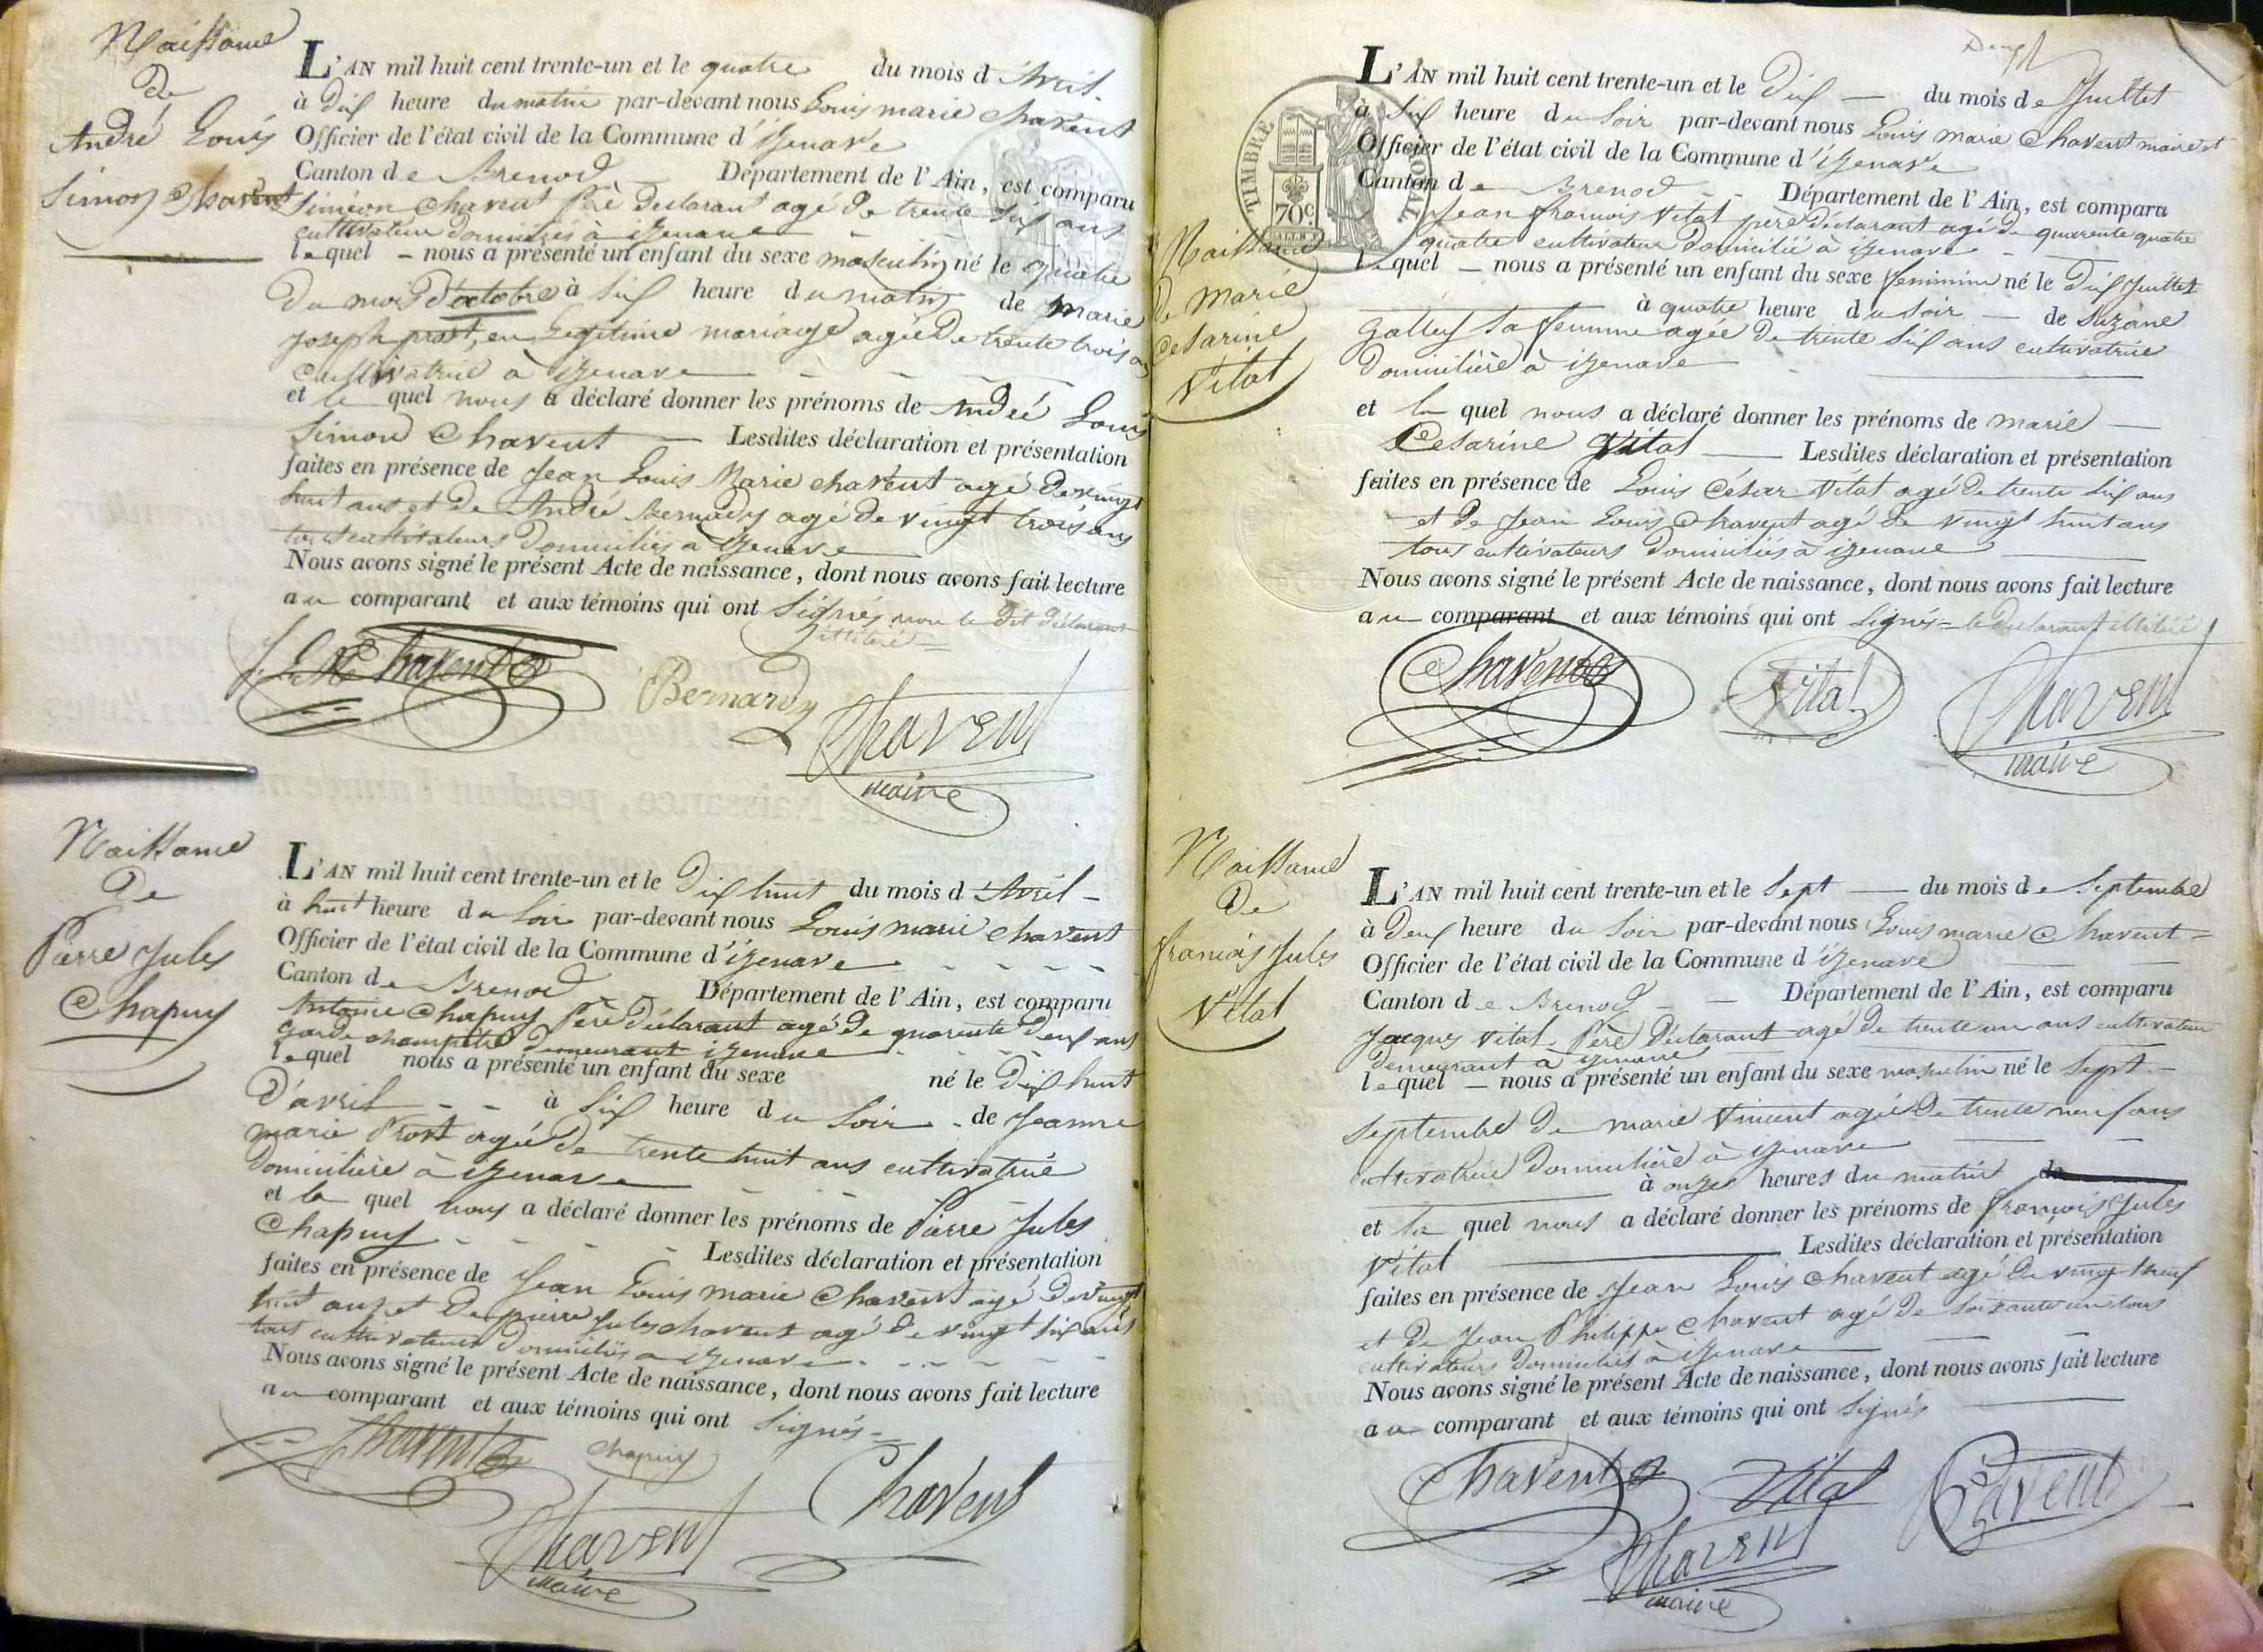 Naissance
de
André Louis
Simon Chavent
L'AN mil huit cent trente-un et le quatre du mois d'Avril.
à dix heure du matin par-devant nous Louis marie chavent
Officier de l'état civil de la Commune d'izenave
Canton de Brenod Département de l'Ain, est comparu
Siméon Chavent Père declarant agé de trente six ans
cultivateur domicilié à izenave
lequel - nous a présenté un enfant du sexe masculin né le quatre
du mois d'octobre à six heure du matin de Marie
joseph prost, en Legitime mariage agée de trente trois ans
cultivatrice à izenave
et le quel nous a déclaré donner les prénoms de André Louis
Simond Chavent Lesdites déclaration et présentation
faites en présence de Jean Louis Marie chavent agé de vingt
huit ans et de André Bernardy agé de vingt trois ans
tous cultivateurs domiciliés à izenave
Nous avons signé le présent Acte de naissance, dont nous avons fait lecture
au comparant et aux témoins qui ont Signés non le dit déclarant
illitéré =
J. L. M. Chavent
Bernardy
Chavent
maire
Naissance
De
Pierre Jules
Chapuy
L'AN mil huit cent trente-un et le Dix huit du mois d'Avril -
à huit heure du Soir par-devant nous Louis marie chavent
Officier de l'état civil de la Commune d'izenave
Canton de Brenod Département de l'Ain, est comparu
Antoine Chapuy Père déclarant agé de quarente deux ans
garde champêtre demeurant izenave
lequel nous a présenté un enfant du sexe né le Dix huit
D'avril - - à Six heure du Soir - de Jeanne
marie Prost agée de trente huit ans cultivatrice
domicilière à izenave
et le quel nous a déclaré donner les prénoms de Pierre Jules
Chapuy Lesdites déclaration et présentation
faites en présence de Jean Louis marie Chavent agé de vingt
huit ans et de pierre Jules chavent agé de vingt six ans
tous cultivateurs domiciliés à izenave
Nous avons signé le présent Acte de naissance, dont nous avons fait lecture
au comparant et aux témoins qui ont Signés =
Chavent
chapuy
Chavent
Chavent
maire
TIMBRE ROYAL
70 c.
Naissance
de Marie
Cesarine
Vital
L'AN mil huit cent trente-un et le Dix — du mois de Juillet
à Six heure du Soir par-devant nous Louis marie Chavent maire et
Officier de l'état civil de la Commune d'izenave
Canton de Brenod - - Département de l'Ain, est comparu
Jean françois Vital père déclarant agé de quarente quatre
quatre cultivateur domicilié à izenave
lequel — nous a présenté un enfant du sexe feminine né le Dix Juillet
à quatre heure du Soir — de Suzane
Gallex Sa femme agée de trente Six ans cultivatrice
domicilière à izenave
et le quel nous a déclaré donner les prénoms de marie —
Cesarine Vital — Lesdites déclaration et présentation
faites en présence de Louis César Vital agé de trente Six ans
et de Jean Louis Chavent agé de vingt huit ans
tous cultivateurs domiciliés à izenave
Nous avons signé le présent Acte de naissance, dont nous avons fait lecture
au comparant et aux témoins qui ont Signés = le declarant illitéré
Chavent
Vital
Chavent
maire
Naissance
De
françois Jules
Vital
L'AN mil huit cent trente-un et le Sept — du mois de Septembre
à Deux heure du Soir par-devant nous Louis marie Chavent =
Officier de l'état civil de la Commune d'izenave
Canton de Brenod - - Département de l'Ain, est comparu
Jacques Vital. Père déclarant agé de trente un ans cultivateur
demeurant à izenave
lequel — nous a présenté un enfant du sexe masculin né le Sept. -
Septembre de marie Vincent agée de trente neuf ans
cultivatrice domicilière à izenave
à onzes heures du matin de
et le quel nous a déclaré donner les prénoms de françois Jules
Vital Lesdites déclaration et présentation
faites en présence de Jean Louis Chavent agé de vingt neuf
et de Jean Philippe Chavent agé de soixante un tous
cultivateurs domiciliés à izenave
Nous avons signé le présent Acte de naissance, dont nous avons fait lecture
au comparant et aux témoins qui ont Signés
Chavent
Vital
Chavent
Chavent
maire